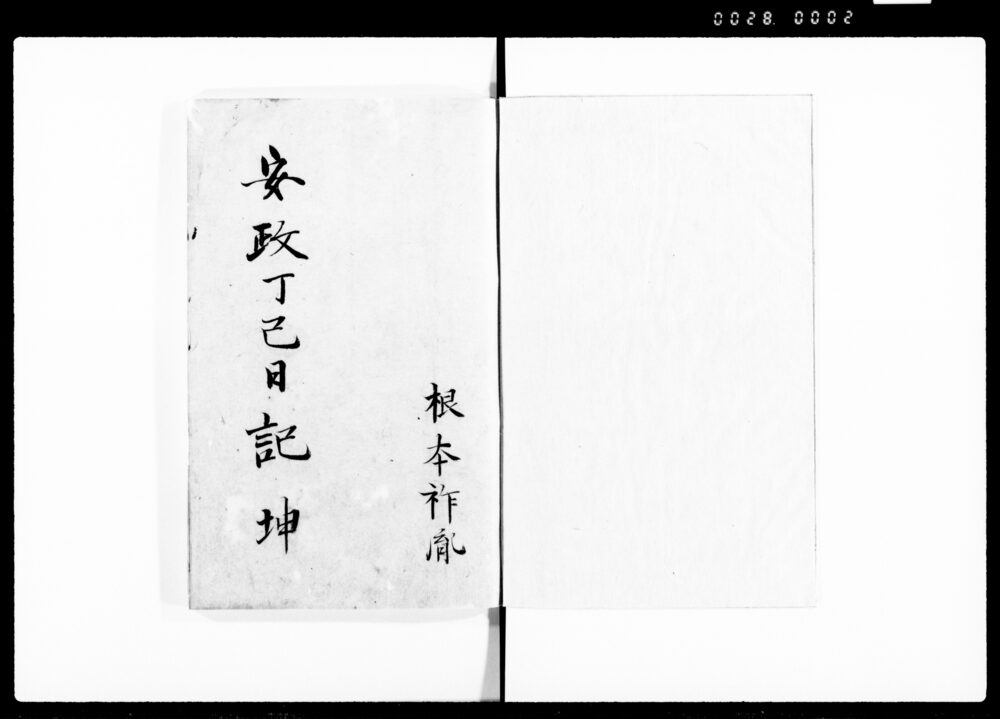 0028. 0002
根本祚胤
安政丁巳日記 坤